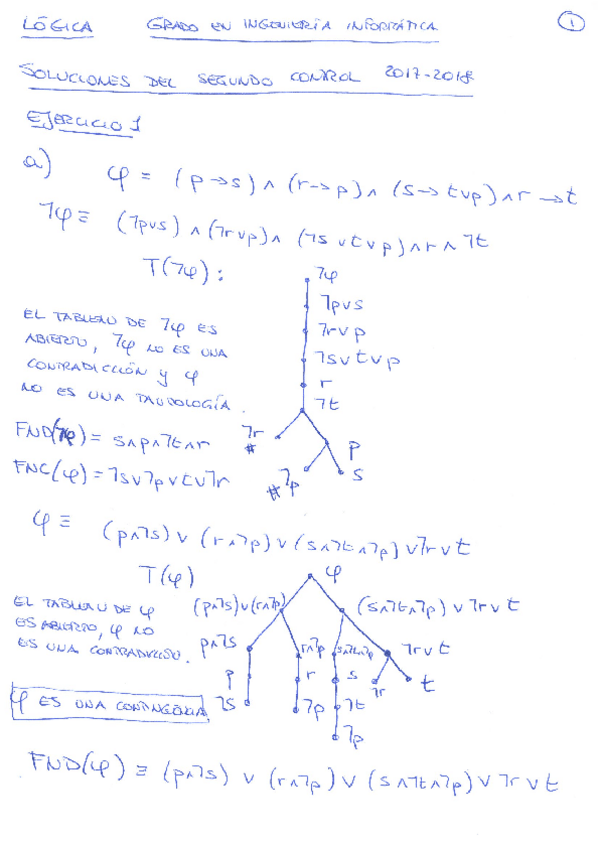 LÓGICA GRADO EN INGENIERÍA INFORMÁTICA 1
SOLUCIONES DEL SEGUNDO CONTROL 2017-2018
EJERCICIO 1
a) φ = (p→s) ∧ (r→p) ∧ (s→t∨p) ∧ r → t
¬φ ≡ (¬p∨s) ∧ (¬r∨p) ∧ (¬s∨t∨p) ∧ r ∧ ¬t
T(¬φ):
¬φ
¬p∨s
¬r∨p
¬s∨t∨p
r
¬t
¬r p
#
¬p s
#
EL TABLEAU DE ¬φ ES
ABIERTO, ¬φ NO ES UNA
CONTRADICCIÓN Y φ
NO ES UNA TAUTOLOGÍA.
FND(¬φ) = s∧p∧¬t∧r
FNC(φ) = ¬s∨¬p∨t∨¬r
φ ≡ (p∧¬s) ∨ (r∧¬p) ∨ (s∧¬t∧¬p) ∨ ¬r ∨ t
T(φ)
φ
(p∧¬s)∨(r∧¬p) (s∧¬t∧¬p) ∨ ¬r ∨ t
p∧¬s r∧¬p s∧¬t∧¬p ¬r∨t
p r s ¬r t
¬s ¬p ¬t
¬p
EL TABLEAU DE φ
ES ABIERTO, φ NO
ES UNA
φ ES UNA CONTINGENCIA.
FND(φ) ≡ (p∧¬s) ∨ (r∧¬p) ∨ (s∧¬t∧¬p) ∨ ¬r ∨ t